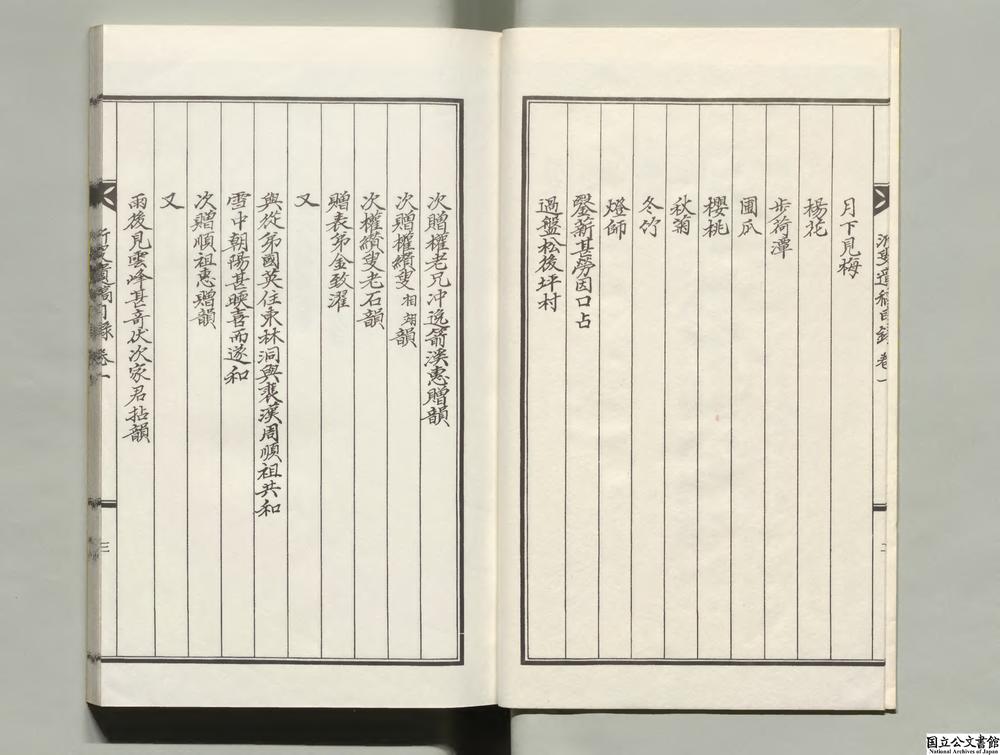 月下見梅
楊花
步荷潭
圃瓜
櫻桃
秋菊
冬竹
燈師
鑿薪甚勞因口占
過盤松後坪村
次贈權老兄冲逸箭溪惠贈韻
次贈權纘叟相翊韻
次權纘叟老石韻
贈表弟金致濯
又
與從弟國英住東林洞與裵漢周順祖共和
雪中朝陽甚暎喜而遂和
次贈順祖惠贈韻
又
雨後見雲峰甚奇伏次家君拈韻
目錄 卷一
三
国立公文書館
National Archives of Japan